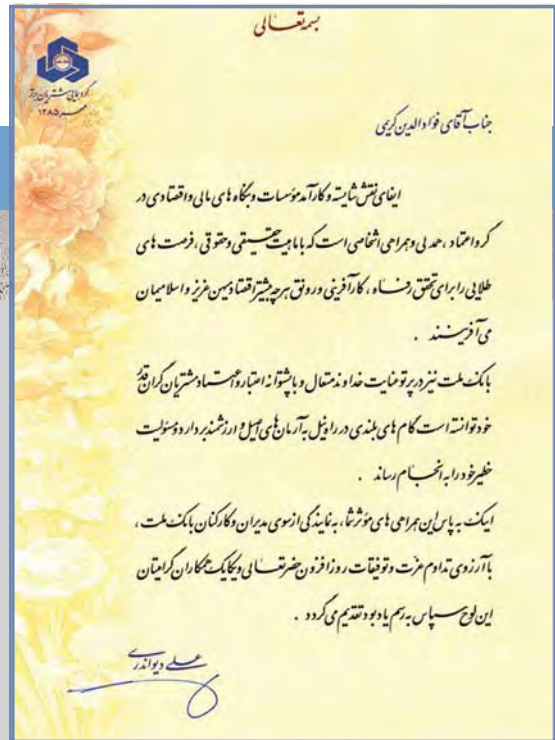 بسمه تعالی
گردهمایی مشتریان برتر
مهر ۱۳۸۵
جناب آقای فؤادالدین کریمی
ایفای نقش شایسته و کارآمد مؤسسات و بنگاه های مالی و اقتصادی در
گرو اعتماد ، همدلی و همراهی اشخاصی است که با ماهیت حقیقی و حقوقی ، فرصت های
طلایی را برای تحقق رفاه ، کارآفرینی و رونق هرچه بیشتر اقتصاد میهن عزیز و اسلامیمان
می آفرینند .
بانک ملت نیز در پرتو عنایت خداوند متعال و با پشتوانه اعتبار و اعتماد مشتریان گران قدر
خود توانسته است گام های بلندی در راه نیل به آرمان های اصیل و ارزشمند بردارد و مسئولیت
خطیر خود را به انجام رساند .
اینک به پاس این همراهی های مؤثر شما ، به نمایندگی از سوی مدیران و کارکنان بانک ملت ،
با آرزوی تداوم عزت و توفیقات روزافزون حضرتعالی و یکایک همکاران گرامیتان
این لوح سپاس به رسم یادبود تقدیم می گردد .
علی دیواندری